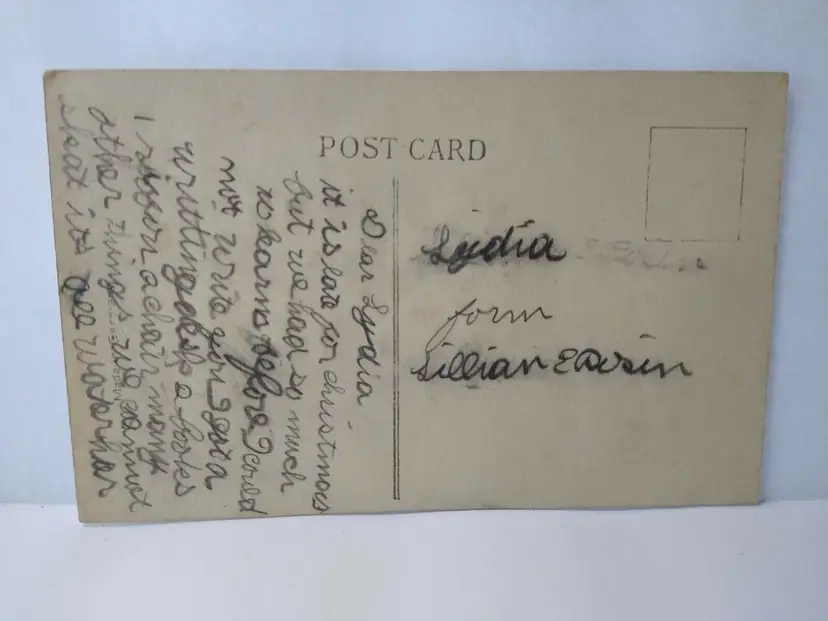 POST CARD
Dear Lydia
it is late for christmas
but we had so much
to learn before I could
not write you I got a
writting desk a books
a chair many
other things we cannot
skat its all water
Lydia
form
Lillian